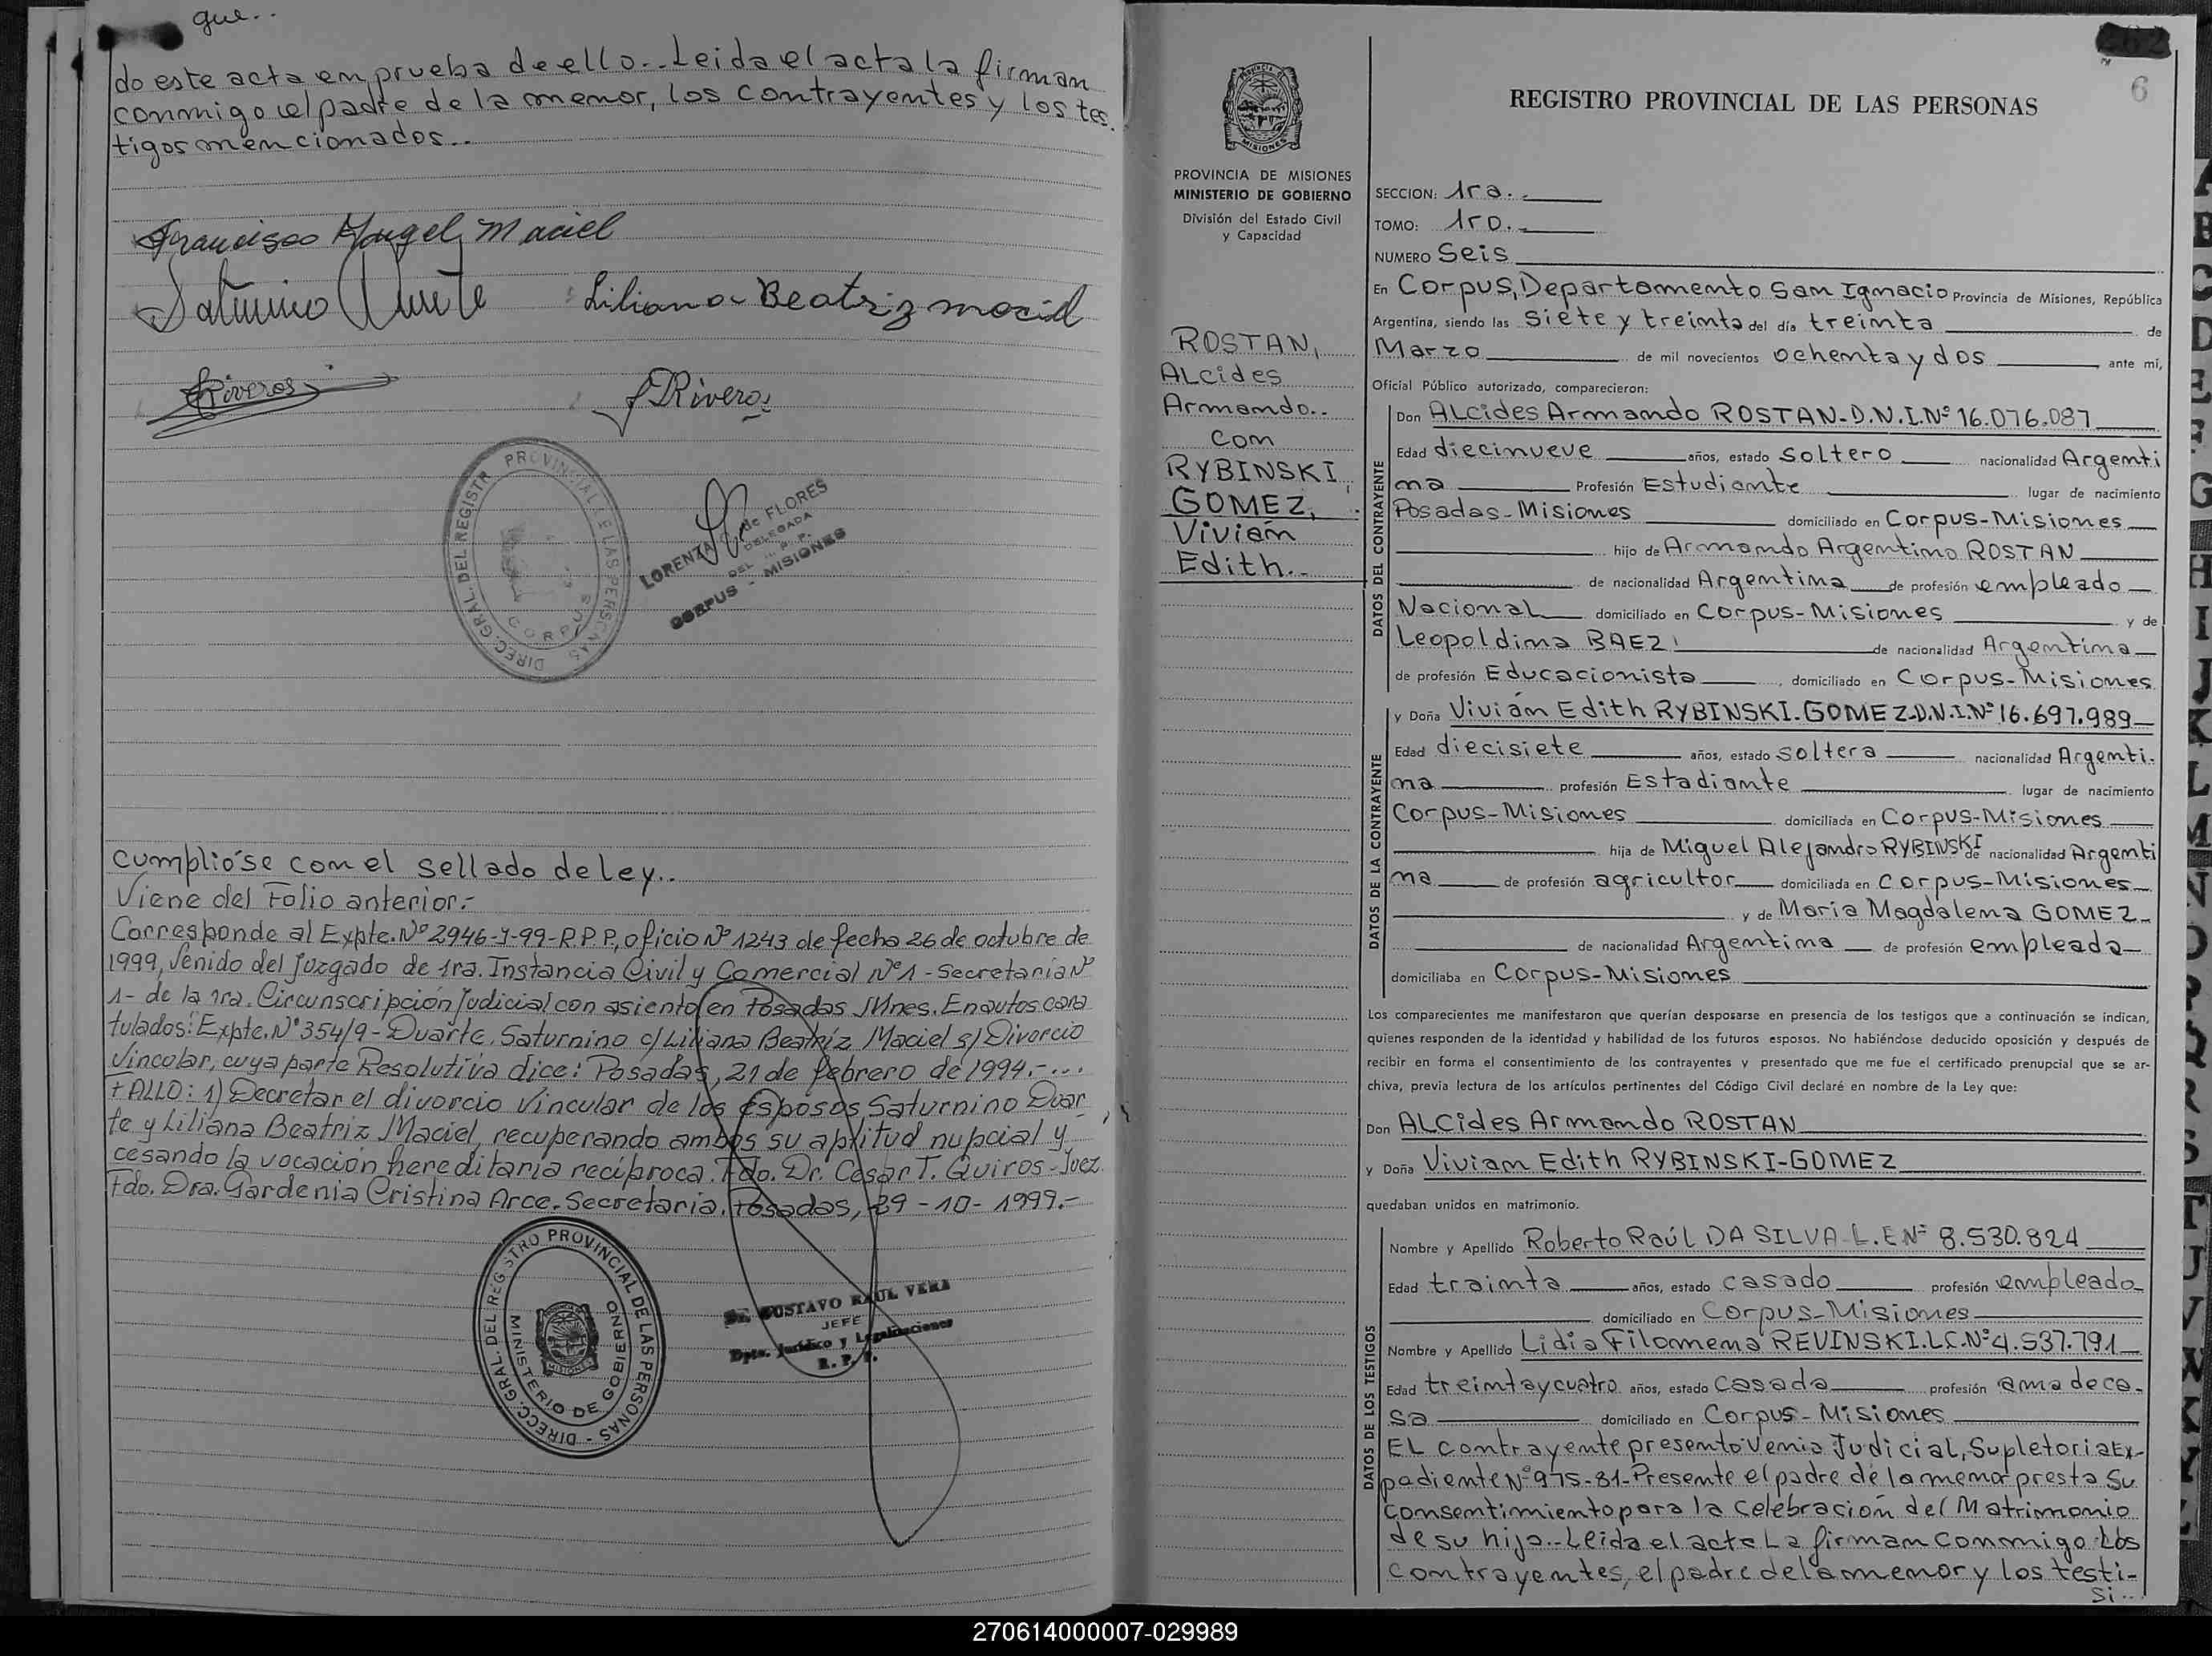 que..
do este acta en prueba de ello.. Leida el acta la firman
conmigo el padre de la menor, los contrayentes y los tes.
tigos mencionados..
Francisco Angel Maciel
Saturnino Duarte Liliana Beatriz maciel
Riveros
Rivero
DIREC. GRAL. DEL REGISTR PROVINCIAL DE LAS PERSONAS
CORPUS
LORENZA de FLORES
DELEGADA
DEL R. P. P.
CORPUS - MISIONES
cumplióse con el sellado de ley..
Viene del Folio anterior.-
Corresponde al Expte. Nº 2946-J-99-R.P.P., oficio Nº 1243 de fecha 26 de octubre de
1999, Venido del Juzgado de 1ra. Instancia Civil y Comercial Nº 1 - Secretaria Nº
1- de la 1ra. Circunscripción Judicial con asiento en Posadas Mnes. En autos cara
tulados: Expte. Nº 354/9 - Duarte, Saturnino c/ Liliana Beatriz Maciel s/ Divorcio
Vincular, cuya parte Resolutiva dice: Posadas, 21 de febrero de 1994.-...
FALLO: 1) Decretar el divorcio Vincular de los Esposos Saturnino Duar
te y Liliana Beatriz Maciel, recuperando ambos su aptitud nupcial y
cesando la vocación hereditaria recíproca. Fdo. Dr. Cesar T. Quiros - Juez
Fdo. Dra. Gardenia Cristina Arce. Secretaria. Posadas, 29 - 10 - 1999.-
DIREC. GRAL. DEL REGISTRO PROVINCIAL DE LAS PERSONAS
MINISTERIO DE GOBIERNO
MISIONES
Dr. GUSTAVO RAUL VERA
JEFE
Dpto. Jurídico y Legalizaciones
R. P. P.
6
REGISTRO PROVINCIAL DE LAS PERSONAS
PROVINCIA DE MISIONES
MINISTERIO DE GOBIERNO
División del Estado Civil
y Capacidad
ROSTAN,
ALcides
Armando..
con
RYBINSKI
GOMEZ,
Vivián
Edith..
SECCION: 1ra..
TOMO: 1ro.
NUMERO Seis
En Corpus, Departamento San Ignacio Provincia de Misiones, República
Argentina, siendo las Siete y treinta del día treinta de
Marzo de mil novecientos ochenta y dos ante mí,
Oficial Público autorizado, comparecieron:
DATOS DEL CONTRAYENTE
Don ALcides Armando ROSTAN-D.N.I.Nº 16.076.087
Edad diecinueve años, estado soltero nacionalidad Argenti
na Profesión Estudiante lugar de nacimiento
Posadas-Misiones domiciliado en Corpus-Misiones
hijo de Armando Argentino ROSTAN
de nacionalidad Argentina de profesión empleado
Nacional domiciliado en Corpus-Misiones y de
Leopoldina BAEZ de nacionalidad Argentina
de profesión Educacionista, domiciliado en Corpus-Misiones
DATOS DE LA CONTRAYENTE
y Doña Vivián Edith RYBINSKI-GOMEZ-D.N.I.Nº 16.697.989
Edad diecisiete años, estado soltera nacionalidad Argenti.
na profesión Estadiante lugar de nacimiento
Corpus-Misiones domiciliada en Corpus-Misiones
hija de Miguel Alejandro RYBINSKI de nacionalidad Argenti
na de profesión agricultor domiciliada en Corpus-Misiones
y de Maria Magdalena GOMEZ
de nacionalidad Argentina de profesión empleada
domiciliaba en Corpus-Misiones
Los comparecientes me manifestaron que querían desposarse en presencia de los testigos que a continuación se indican,
quienes responden de la identidad y habilidad de los futuros esposos. No habiéndose deducido oposición y después de
recibir en forma el consentimiento de los contrayentes y presentado que me fue el certificado prenupcial que se ar-
chiva, previa lectura de los artículos pertinentes del Código Civil declaré en nombre de la Ley que:
Don ALcides Armando ROSTAN
y Doña Vivian Edith RYBINSKI-GOMEZ
quedaban unidos en matrimonio.
DATOS DE LOS TESTIGOS
Nombre y Apellido Roberto Raúl DA SILVA-L.E.Nº 8.530.824
Edad trainta años, estado casado profesión empleado
domiciliado en Corpus-Misiones
Nombre y Apellido Lidia Filomena REVINSKI.L.C.Nº 4.537.791
Edad treintaycuatro años, estado casada profesión ama de ca-
sa domiciliado en Corpus-Misiones
EL contrayente presentó Venia Judicial, Supletoria Ex-
pediente Nº 975-81-Presente el padre de la menor presta su
consentimiento para la celebración del Matrimonio
de su hija.. Leida el acta La firman conmigo Los
contrayentes, el padre de la menor y los testi-
si..
270614000007-029989